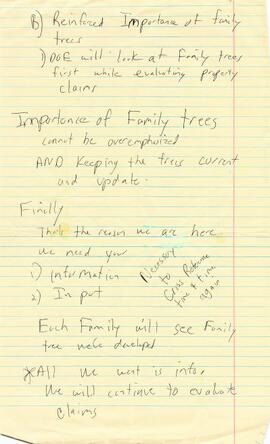 B) Reinforced Importance of family
trees
1) OGE will look at Family trees
first while evaluating property
claims
Importance of Family trees
cannot be overemphasized
AND Keeping the trees current
and update.
Finally
Thats the reason we are here
we need your
1) information
2) In put
Necessary
to
Cross Reference
time & time
again
Each Family will see Family
tree we've developed
*All we want is info.
We will continue to evaluate
claims